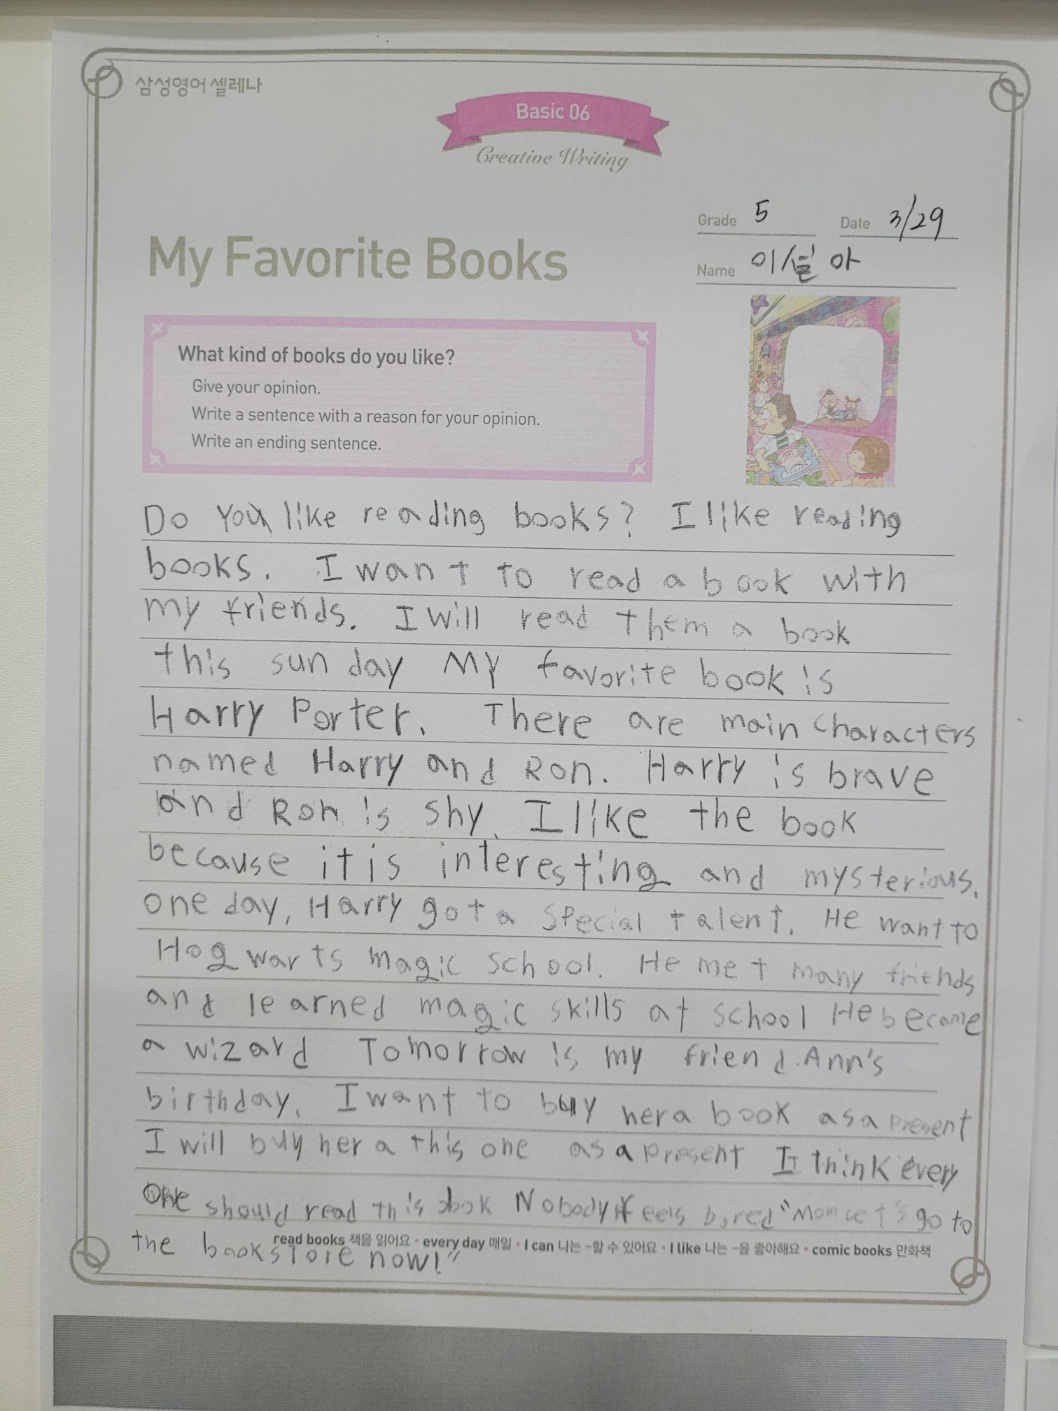 삼성영어 셀레나
Basic 06
Creative Writing
Grade 5 Date 3/29
My Favorite Books
Name 이설아
What kind of books do you like?
Give your opinion.
Write a sentence with a reason for your opinion.
Write an ending sentence.
Do you like reading books? I like reading
books. I want to read a book with
my friends. I will read them a book
this sunday My favorite book is
Harry Porter. There are main characters
named Harry and Ron. Harry is brave
and Ron is shy. I like the book
because it is interesting and mysterious.
one day, Harry got a special talent. He want to
Hogwarts magic school. He met many friends
and learned magic skills at school He became
a wizard Tomorrow is my friend Ann's
birthday. I want to buy her a book as a present
I will buy her a this one as a present I think every
one should read this book Nobody feels bored "Mom let's go to
the bookstore now!"
read books 책을 읽어요 · every day 매일 · I can 나는 ~할 수 있어요 · I like 나는 ~을 좋아해요 · comic books 만화책